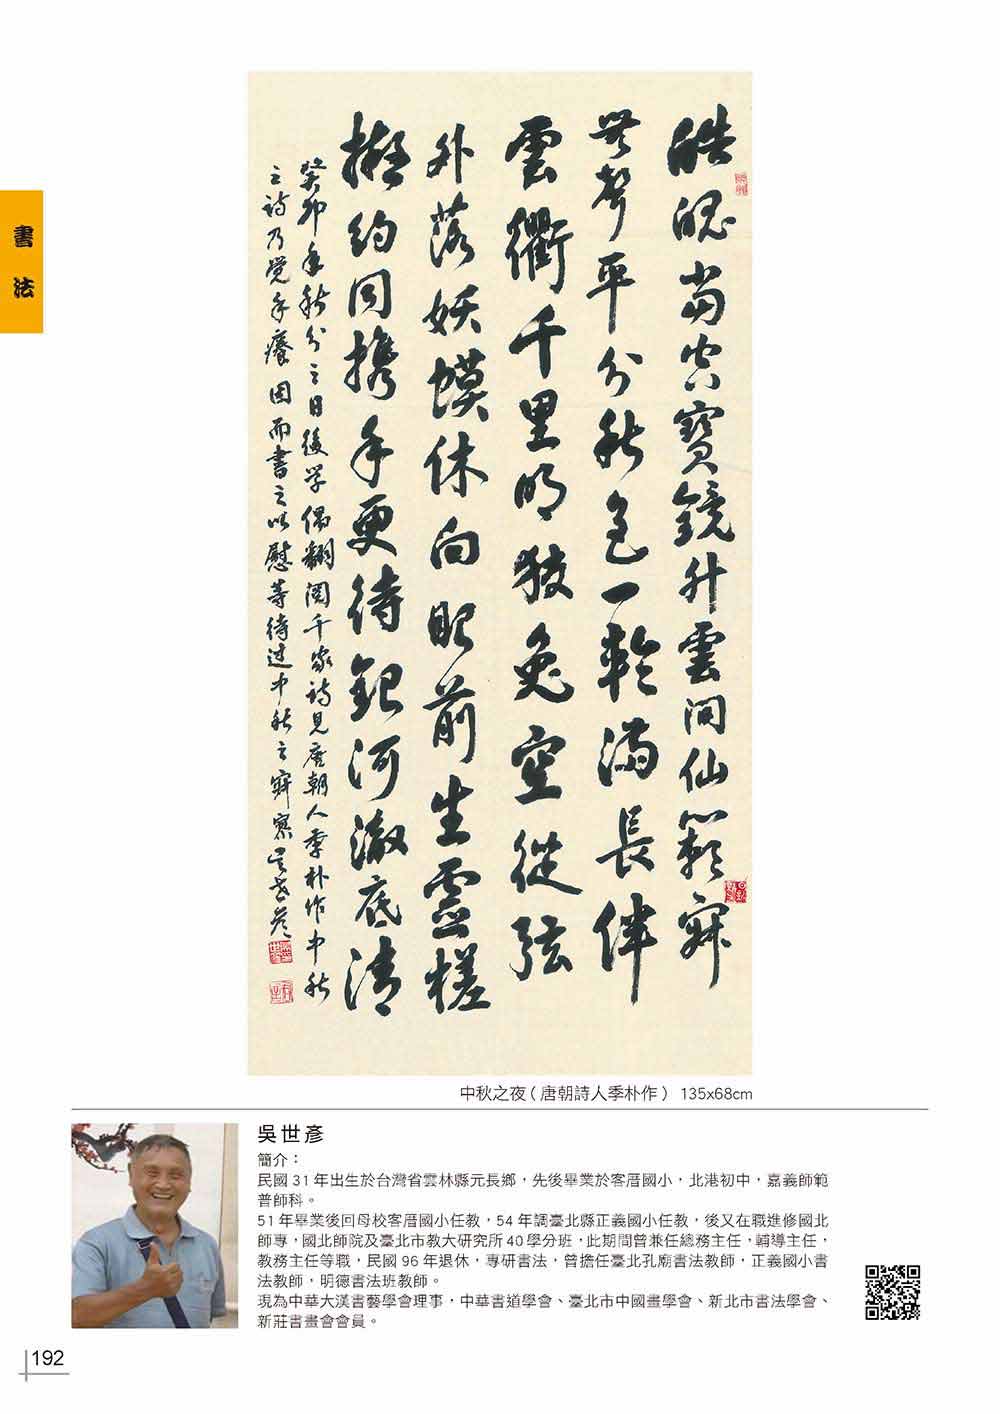 書法
皓魄當空寶鏡升雲間仙籟寂
無聲平分秋色一輪滿長伴
雲衢千里明狡兔空從弦
外落妖蟆休向眼前生靈槎
擬約同攜手更待銀河澈底清
癸卯年秋分之日後学偶翻閱千家詩見唐朝人季朴作中秋
之詩乃覺手癢因而書之以慰等待过中秋之寂寞吳世彦
中秋之夜（唐朝詩人季朴作） 135x68cm
吳世彥
簡介：
民國 31 年出生於台灣省雲林縣元長鄉，先後畢業於客厝國小，北港初中，嘉義師範
普師科。
51 年畢業後回母校客厝國小任教，54 年調臺北縣正義國小任教，後又在職進修國北
師專，國北師院及臺北市教大研究所 40 學分班，此期間曾兼任總務主任，輔導主任，
教務主任等職，民國 96 年退休，專研書法，曾擔任臺北孔廟書法教師，正義國小書
法教師，明德書法班教師。
現為中華大漢書藝學會理事，中華書道學會、臺北市中國畫學會、新北市書法學會、
新莊書畫會會員。
192